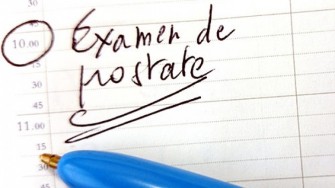 10.00
Examen de
15
prostate
30
45
11.00
15
30